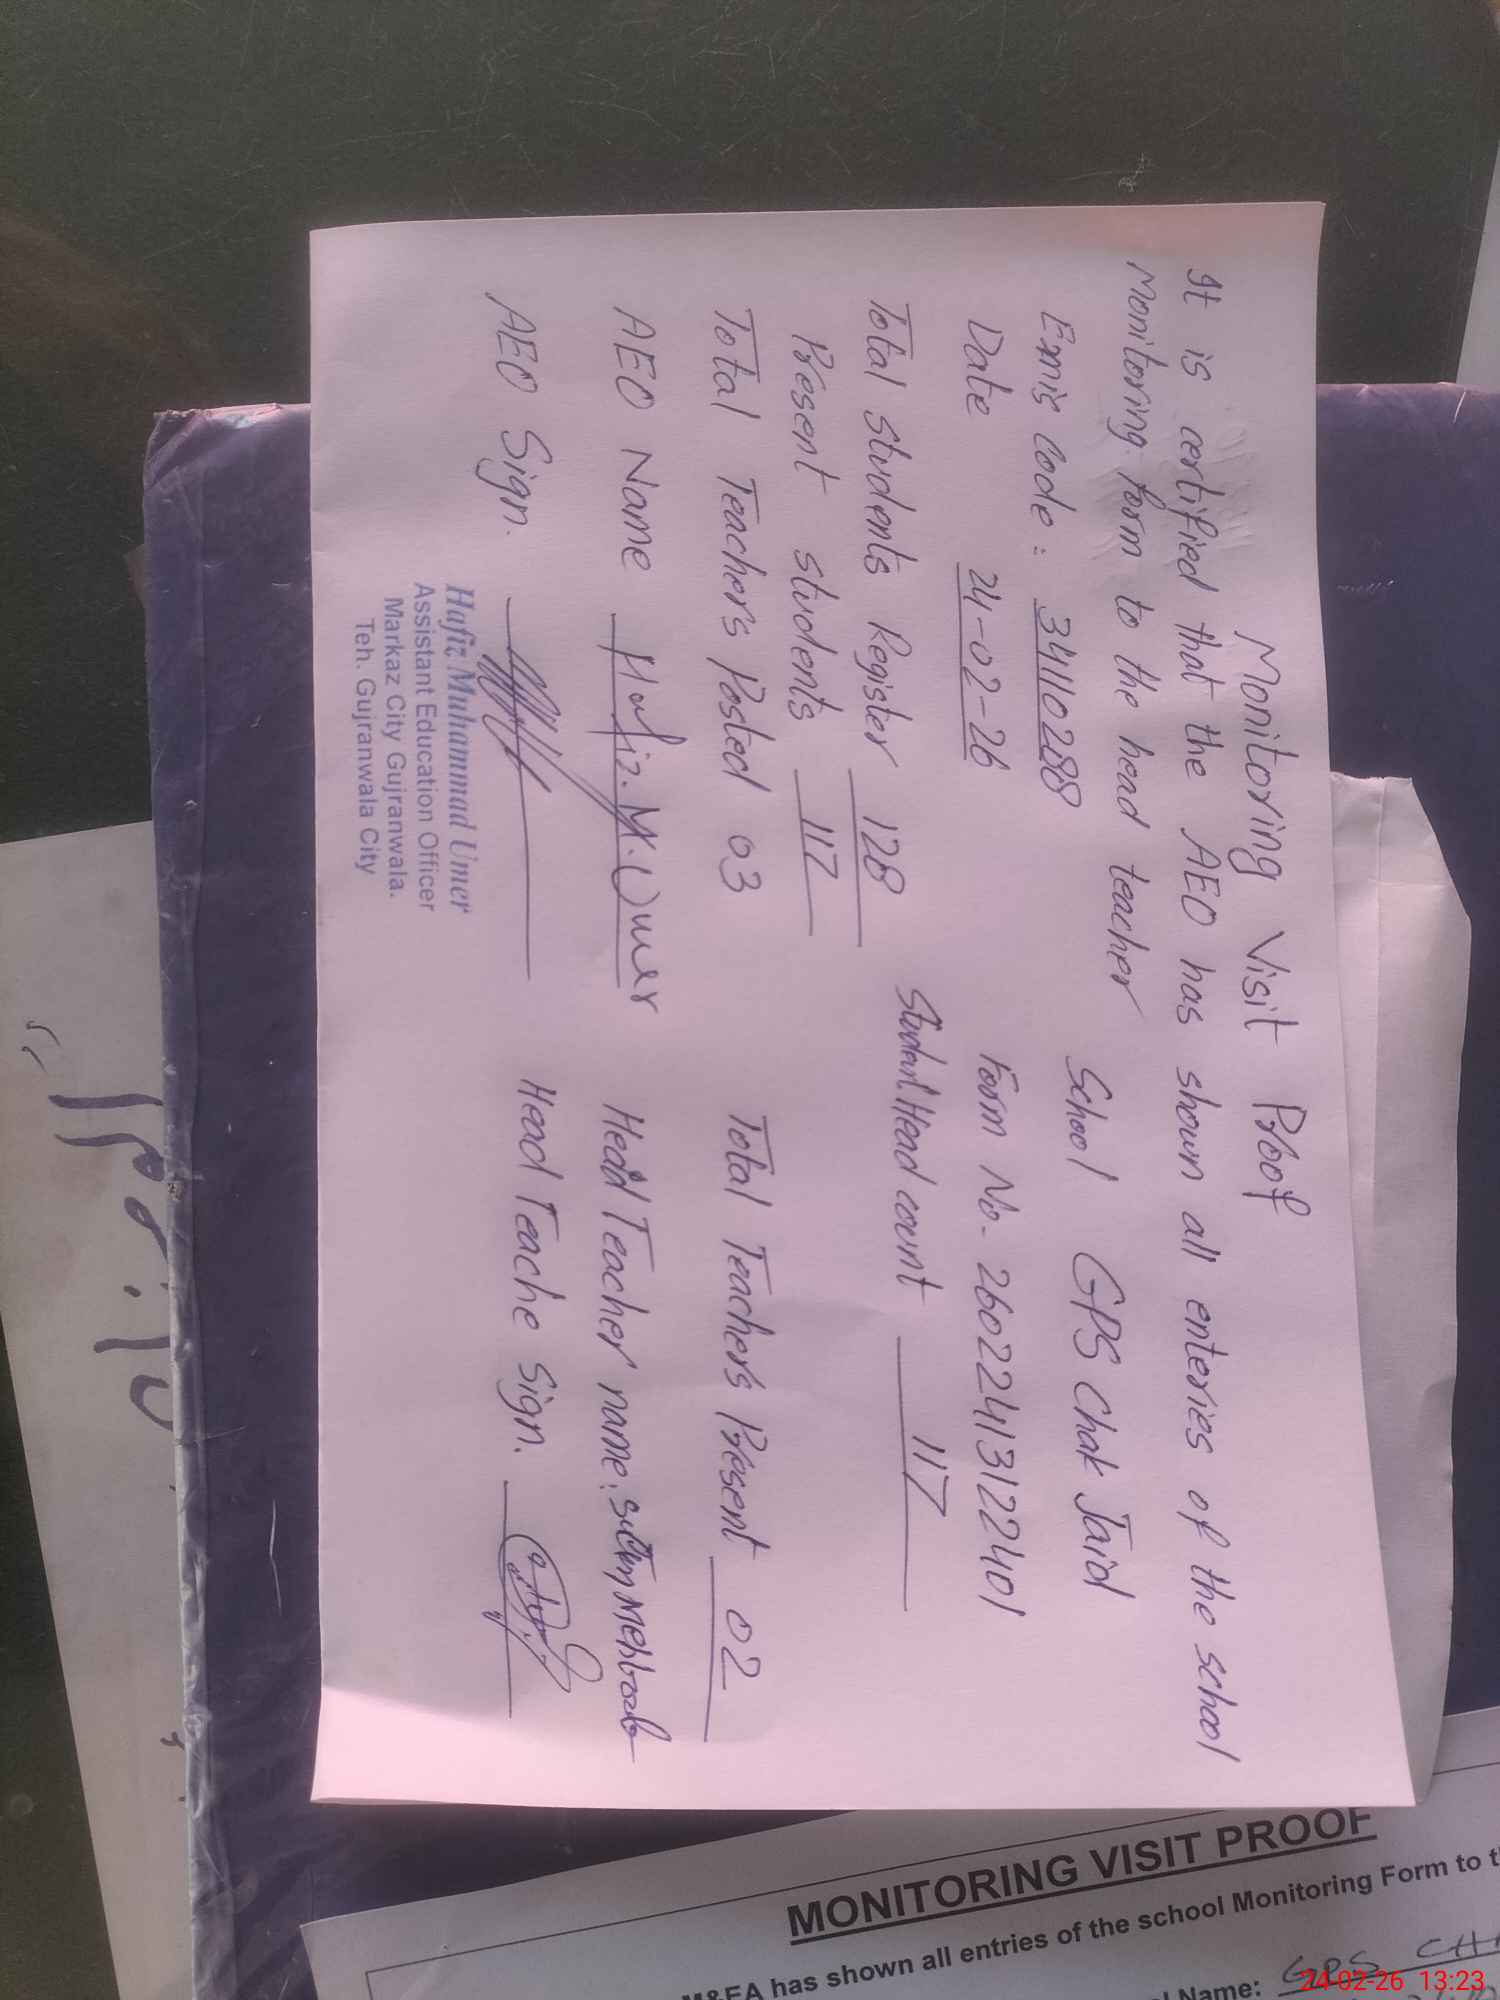 Monitoring Visit Proof
It is certified that the AEO has shown all enteries of the school
Monitoring form to the head teacher
Emis code: 34110288 School GPS Chak Jaid
Date 24-02-26 Form No- 26022413122401
Total students Register 128 Student Head count 117
Present students 117
Total Teachers Posted 03 Total Teachers Present 02
AEO Name Hafiz. M. Umer Head Teacher name:
AEO Sign. Head Teache Sign.
Hafiz Muhammad Umer
Assistant Education Officer
Markaz City Gujranwala.
Teh. Gujranwala City
MONITORING VISIT PROOF
M&EA has shown all entries of the school Monitoring Form to
Name: GPS
24-02-26 13:23